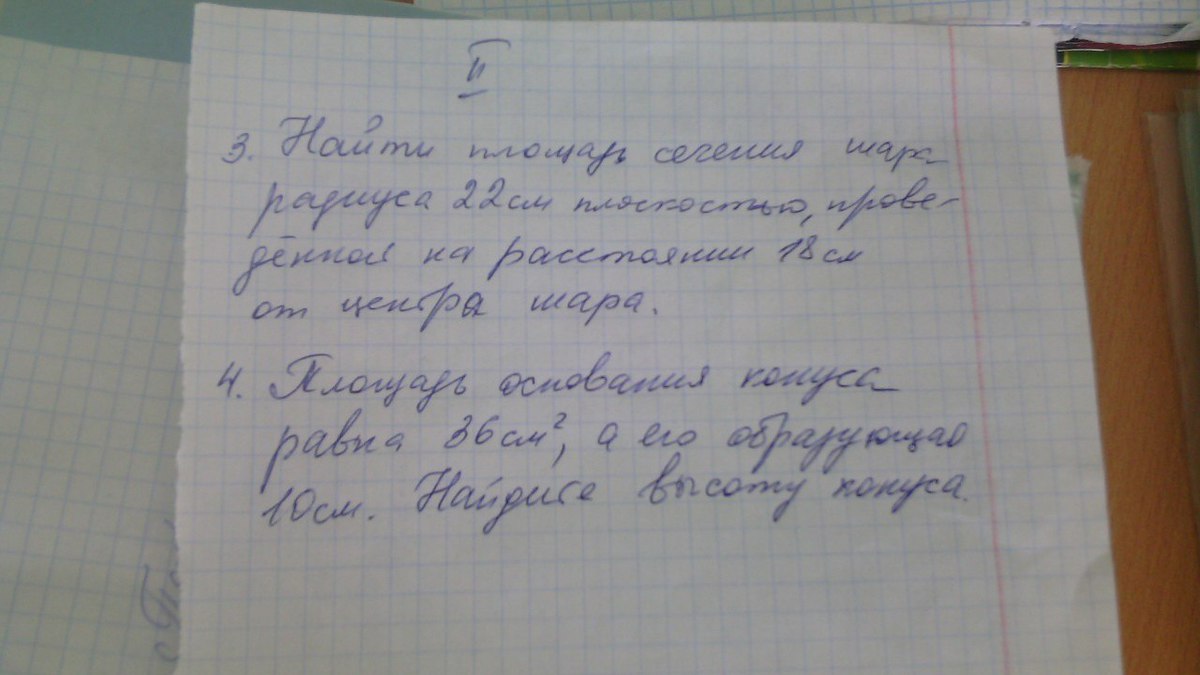 II
3. Найти площадь сечения шара
радиуса 22см плоскостью, прове-
дённой на расстоянии 18см
от центра шара.
4. Площадь основания конуса
равна 36см², а его образующая
10см. Найдите высоту конуса.